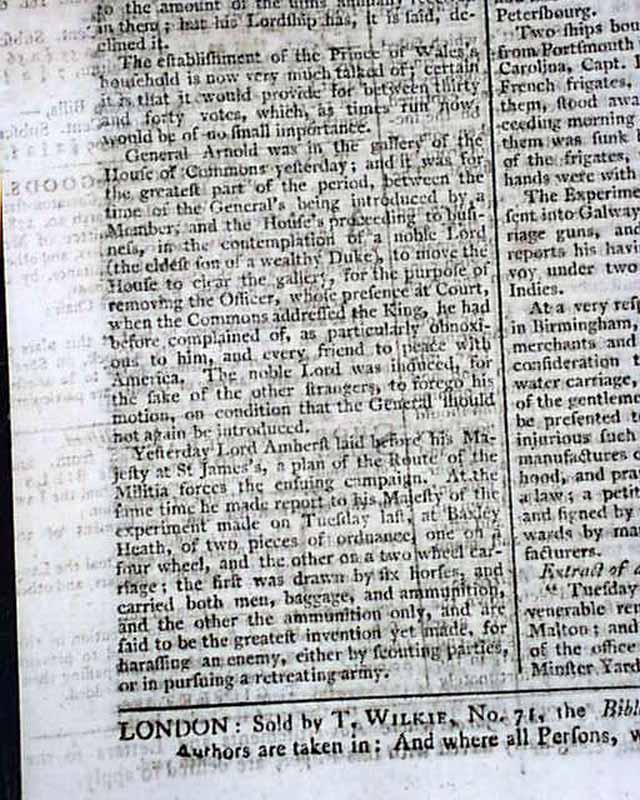 to the amount of the sums annually
in them; but his Lordship has, it is said, de-
clined it.
The eſtabliſhment of the Prince of Wales's
houſehold is now very much talked of; certain
it is that it would provide for between thirty
and forty votes, which, as times run now,
would be of no ſmall importance.
General Arnold was in the gallery of the
Houſe of Commons yeſterday; and it was for
the greateſt part of the period, between the
time of the General's being introduced by a
Member, and the Houſe's proceeding to buſi-
neſs, in the contemplation of a noble Lord
(the eldeſt ſon of a wealthy Duke), to move the
Houſe to clear the gallery, for the purpoſe of
removing the Officer, whoſe preſence at Court,
when the Commons addreſſed the King, he had
before complained of, as particularly obnoxi-
ous to him, and every friend to peace with
America. The noble Lord was induced, for
the ſake of the other ſtrangers, to forego his
motion, on condition that the General ſhould
not again be introduced.
Yeſterday Lord Amherſt laid before his Ma-
jeſty at St James's, a plan of the Route of the
Militia forces the enſuing campaign. At the
ſame time he made report to his Majeſty of the
experiment made on Tueſday laſt, at Baxley
Heath, of two pieces of ordnance, one on a
four wheel, and the other on a two wheel car-
riage; the firſt was drawn by ſix horſes, and
carried both men, baggage, and ammunition,
and the other the ammunition only, and are
ſaid to be the greateſt invention yet made, for
haraſſing an enemy, either by ſcouting parties,
or in purſuing a retreating army.
Peterſbourg.
Two ſhips bou
from Portſmouth
Carolina, Capt.
French frigates,
them, ſtood awa
ceeding morning
them was ſunk
of the frigates,
hands were with
The Experim
ſent into Galway
riage guns, and
reports his havi
voy under two
Indies.
At a very reſp
in Birmingham,
merchants and
conſideration t
water carriage,
of the gentleme
be preſented t
injurious ſuch
manufactures o
hood, and pra
a law; a petit
and ſigned by
wards by ma
facturers.
Extract of a
" Tueſday
venerable re
Malton; and
of the office
Minſter Yard
LONDON: Sold by T. WILKIE, No. 71, the Bibl
Authors are taken in; And where all Perſons, w